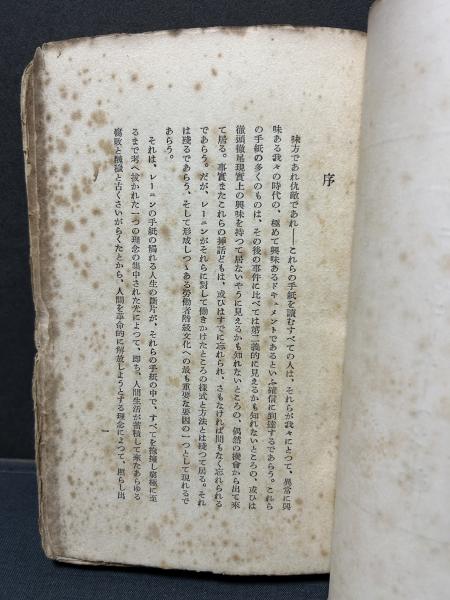 序
味方であれ仇敵であれ――これらの手紙を讀むすべての人は、それらが我々にとつて、異常に興
味ある我々の時代の、極めて興味あるドキュメントであるといふ確信に到達するであらう。これら
の手紙の多くのものは、その後の事件に比べては第二義的に見えるかも知れないところの、或ひは
徹頭徹尾現實上の興味を持つて居ないやうに見えるかも知れないところの、偶然の機會から出て來
て居る。事實またこれらの插話どもは、或ひはすでに忘れられ、さもなければ間もなく忘れられる
であらう。だが、レーニンがそれらに對して働きかけたところの樣式と方法とは殘つて居る。それ
は殘るであらう、そして形成しつゝある勞働者階級文化への最も重要な要因の一つとして現れるで
あらう。
それは、レーニンの手紙の觸れる人生の斷片が、それらの手紙の中で、すべてを擁擁し窮極に至
るまで考へ拔かれた一つの理念の集中された光によつて、即ち、人間生活が蓄積して來たあらゆる
腐敗と醜穢と古くさいがらくたとから、人間を革命的に解放しようとする理念によつて、照らし出
一